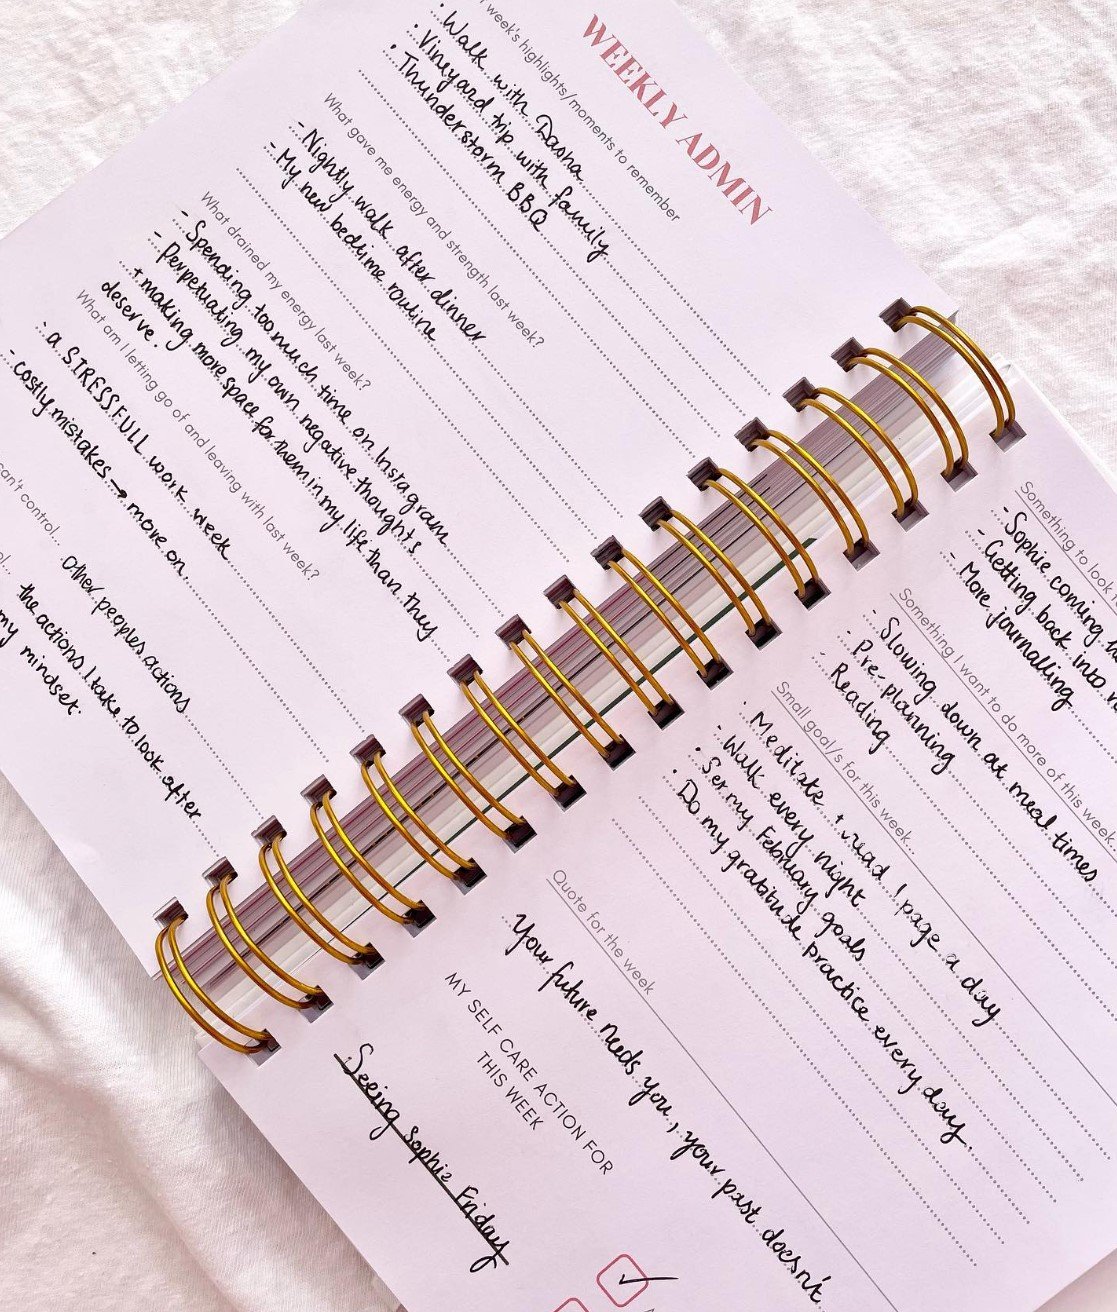 WEEKLY ADMIN
week's highlights/moments to remember
· Walk with Dasha
· Vineyard trip with family
· Thunderstorm BBQ
What gave me energy and strength last week?
- Nightly walk after dinner
- My new bedtime routine
What drained my energy last week?
- Spending too much time on Instagram
- Perpetuating my own negative thoughts
+ making more space for them in my life than they
deserve.
What am I letting go of and leaving with last week?
· a STRESSFULL work week
- costly mistakes → more on.
can't control... Other peoples actions
the actions I take to look after
my mindset.
Something to look
- Sophie coming
- Getting back into
- More journalling
Something I want to do more of this week...
· Slowing down at meal times
· Pre-planning
- Reading
Small goal/s for this week...
· Meditate + read 1 page a day
· Walk every night
· Set my February goals
· Do my gratitude practice every day.
Quote for the week
Your future needs you, your past doesn't
MY SELF CARE ACTION FOR
THIS WEEK
Seeing Sophie Friday